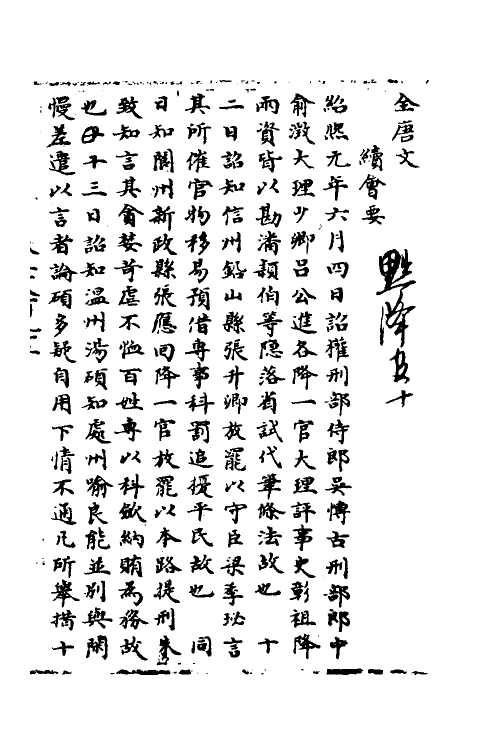 全唐文
續會要
黜降五十
紹熙元年六月四日詔權刑部侍郎吳博古刑部郎中
俞澂大理少卿呂公進各降一官大理評事史彰祖降
兩資皆以勘潘頴伯等隱落省試代筆條法故也 十
二日詔知信州鉛山縣張升卿放罷以守臣梁季珌言
其所催官物移易預借專事科罰追擾平民故也 同
日知閬州新政縣張應回降一官放罷以本路提刑朱
致知言其貪婪苛虐不恤百姓專以科斂納賄為務故
也 十三日詔知溫州湯碩知處州喻良能並別與閑
慢差遣以言者論碩多疑自用下情不通凡所舉措十